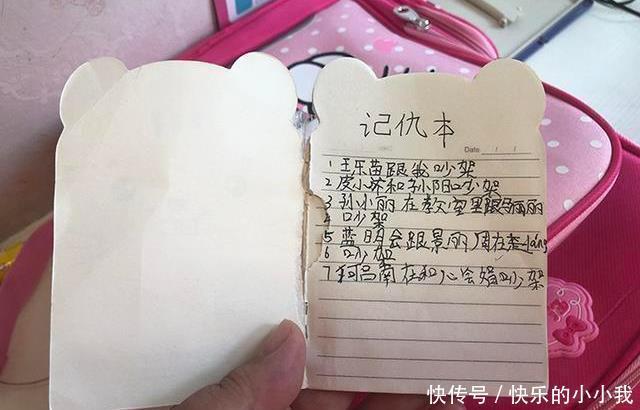 记仇本
Date / /
1 王乐苗跟我吵架
2 皮小 和孙阳吵架
3 孙小丽在教室里跟 丽
4 吵架
5 蓝明会跟景丽周在 
6 吵架
7 南在和心会娟吵架
快传号／快乐的小小我